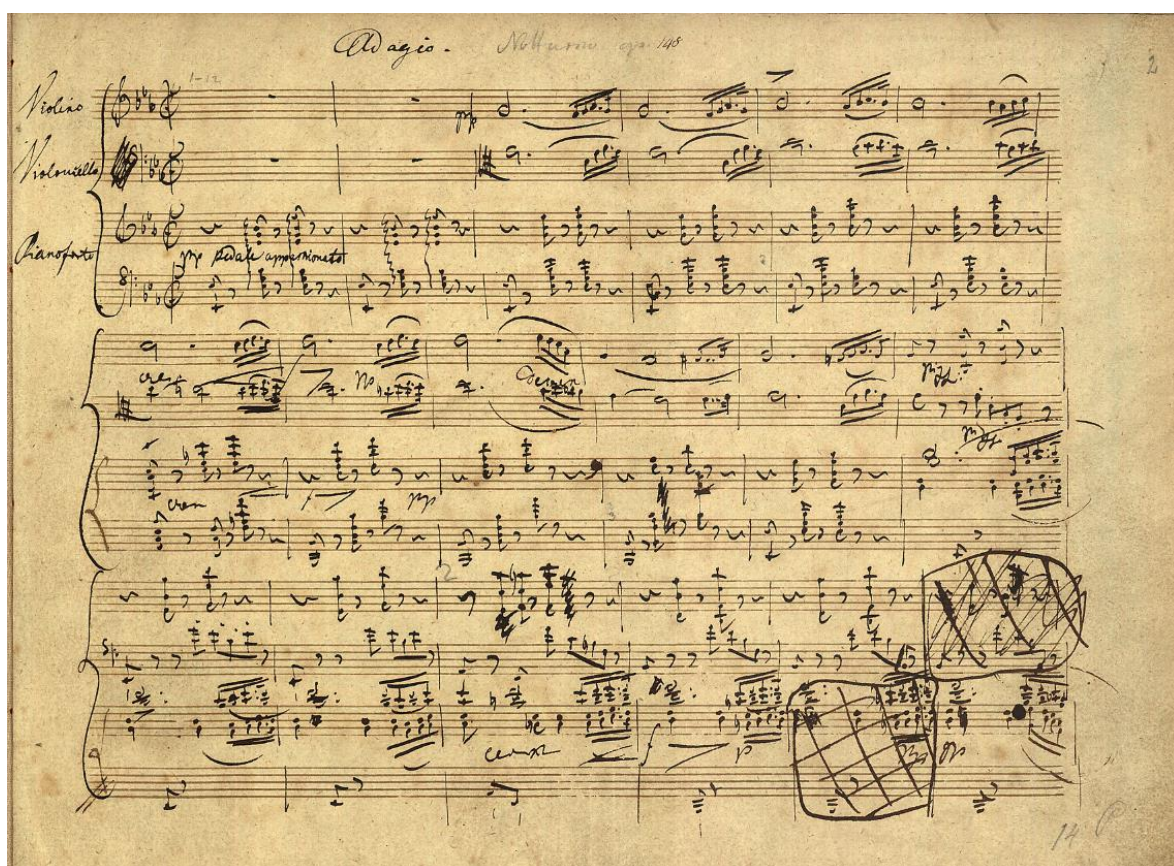 Adagio. Notturno op. 148
2
1-12
Violino
pp
Violoncello
Pianoforte
pp pedale appassionato
cre
decresc
cresc
pp
2
cresc
p
pp
14